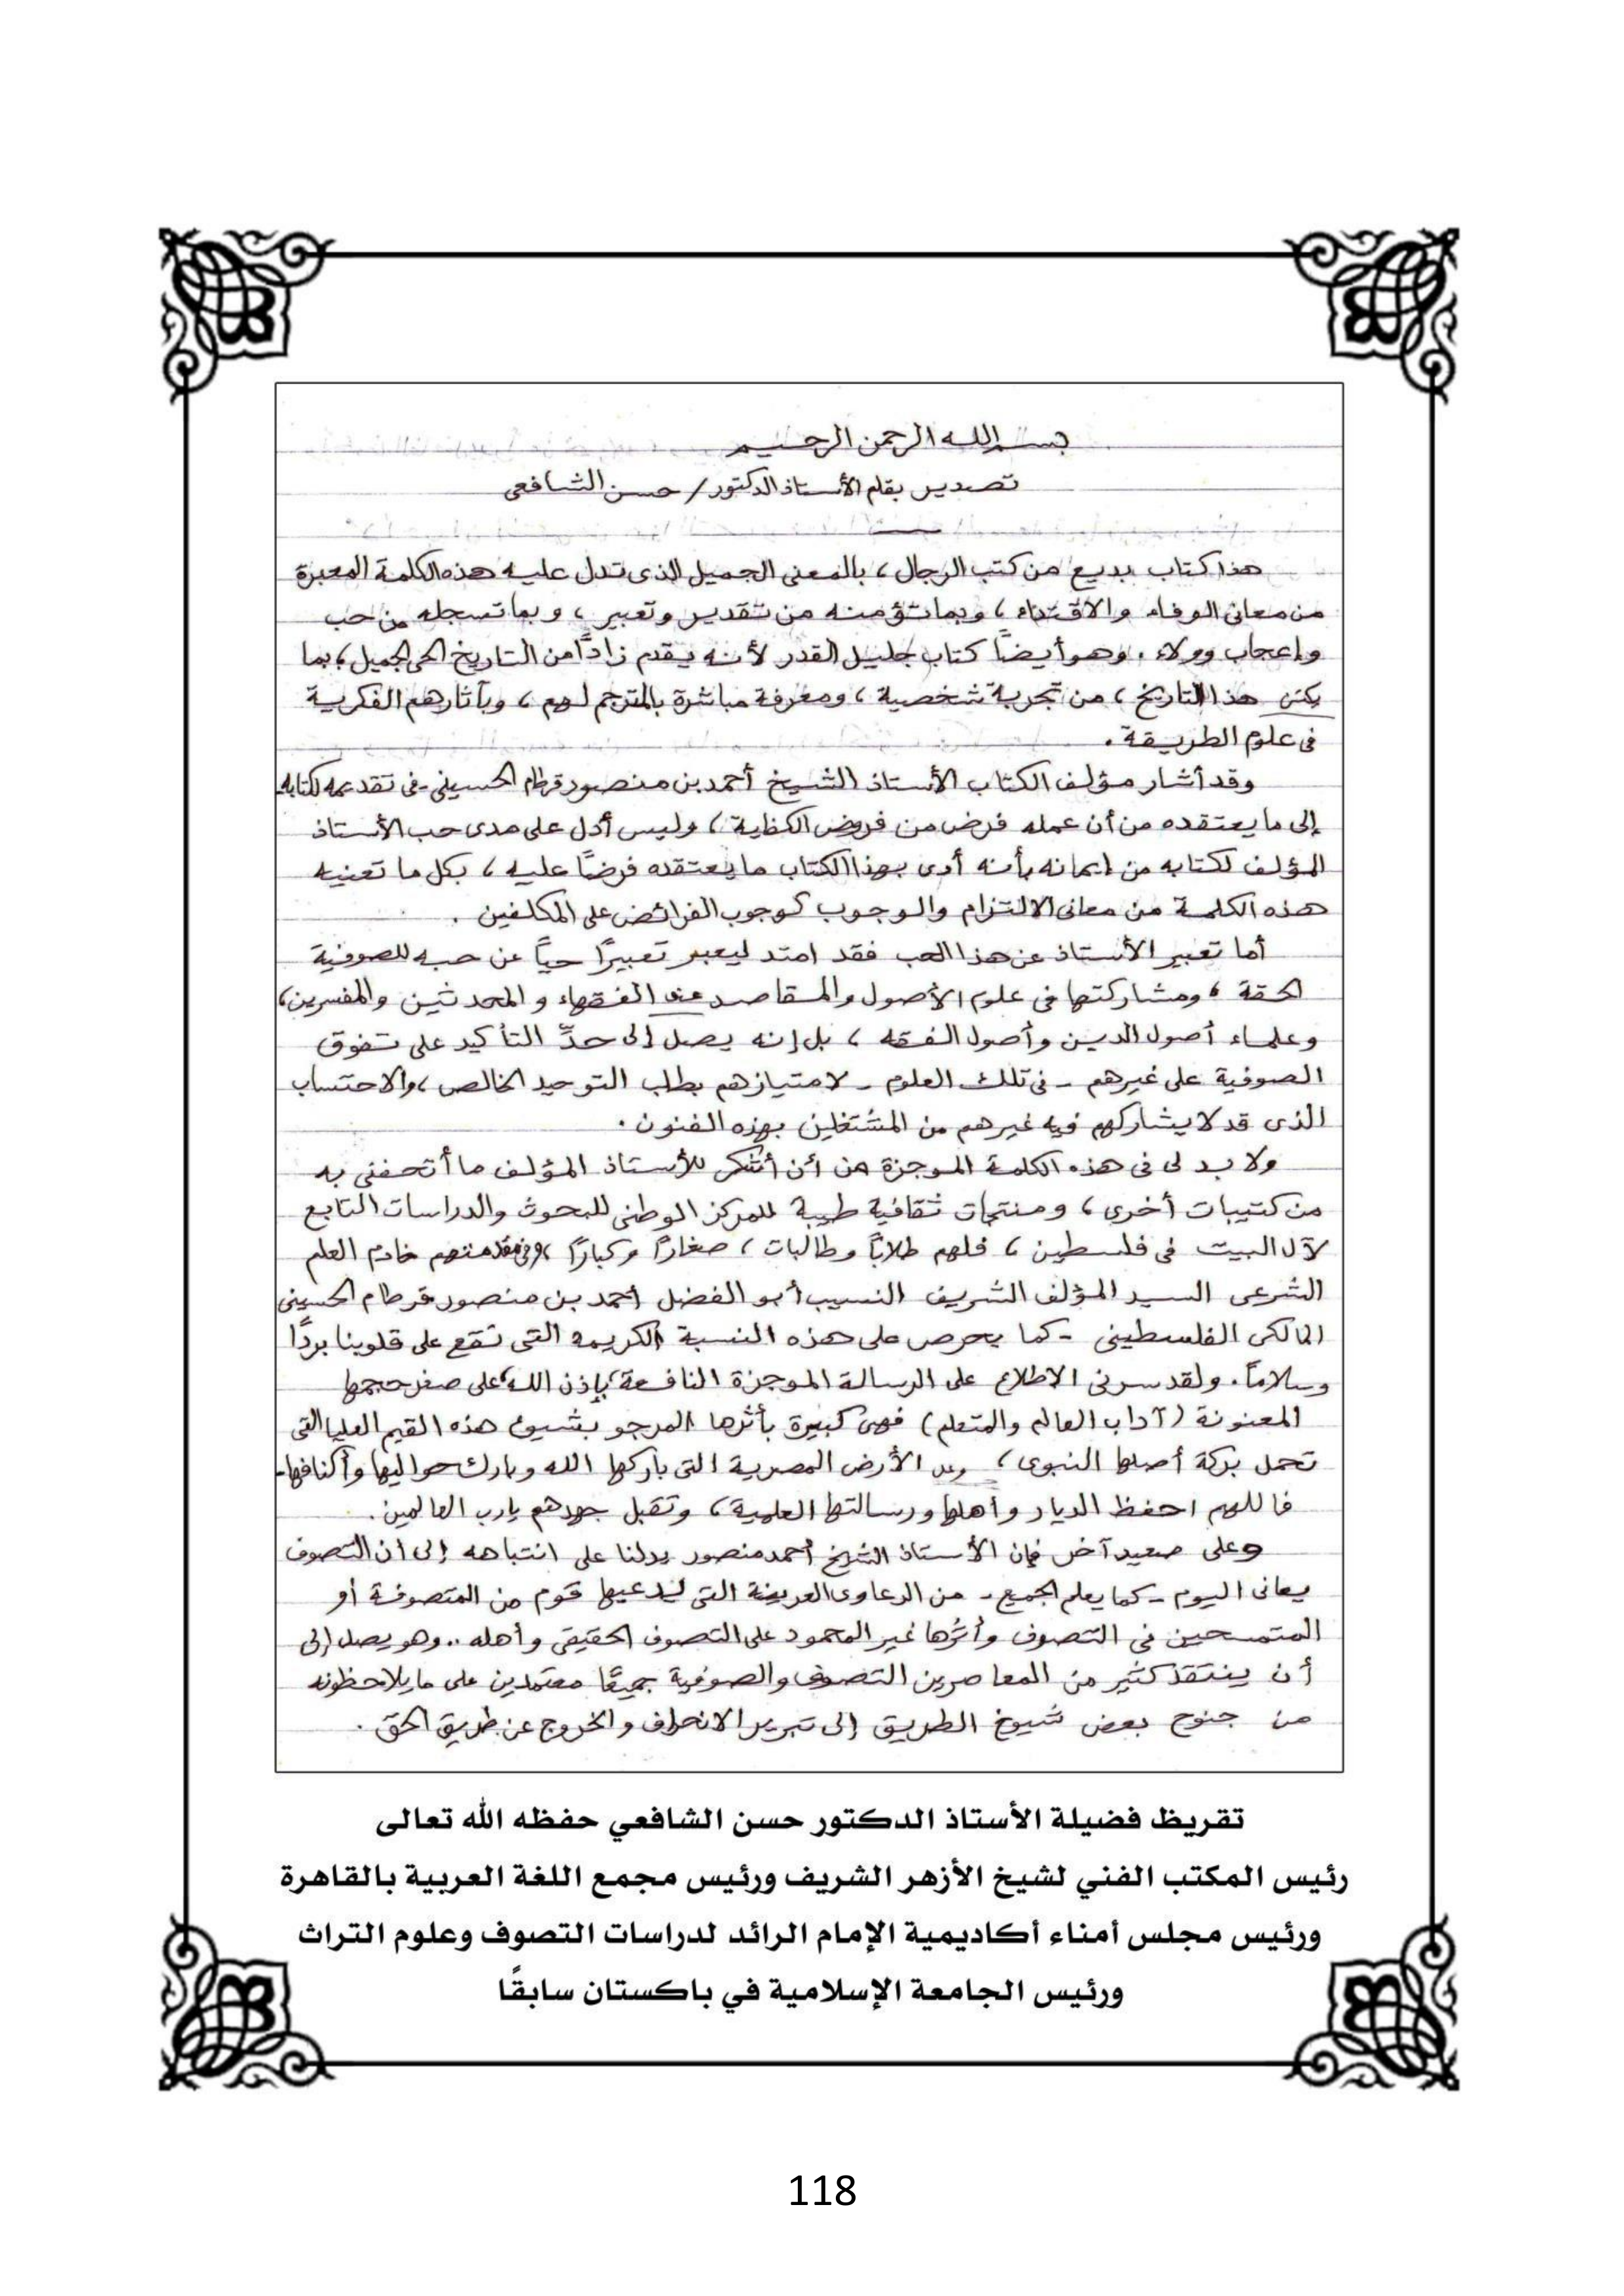 بسم الله الرحمن الرحيم
تصدير بقلم الأستاذ الدكتور / حسن الشافعى
هذا كتاب بديع من كتب الرجال، بالمعنى الجميل الذى تدل عليه هذه الكلمة المعبرة
من معانى الوفاء والاقتداء، وبما تؤمنه من تقدير وتعبير، وبما تسجله من حب
وإعجاب وولاء. وهو أيضاً كتاب جليل القدر لأنه يقدم زاداً من التاريخ الحى الجميل، بما
يكنى هذا التاريخ، من تجربة شخصية، ومعرفة مباشرة بالمترجم لهم، وبآثارهم الفكرية
فى علوم الطريقة.
وقد أشار مؤلف الكتاب الأستاذ الشيخ أحمد بن منصور قرطام الحسينى - فى تقدمه لكتابه
إلى ما يعتقده من أن عمله فرض من فروض الكفاية، وليس أدل على مدى حب الأستاذ
المؤلف لكتابه من إيمانه بأنه أدى بهذا الكتاب ما يعتقده فرضاً عليه، بكل ما تعنيه
هذه الكلمة من معانى الالتزام والوجوب كوجوب الفرائض على المكلفين.
أما تعبير الأستاذ عن هذا الحب فقد امتد ليعبر تعبيراً حياً عن حبه للصوفية
الحقة، ومشاركتها فى علوم الأصول والمقاصد عند الفقهاء والمحدثين والمفسرين،
وعلماء أصول الدين وأصول الفقه، بل إنه يصل إلى حدِّ التأكيد على تفوق
الصوفية على غيرهم - فى تلك العلوم - لامتيازهم بطلب التوحيد الخالص، والاحتساب
الذى قد لا يشاركهم فيه غيرهم من المشتغلين بهذه الفنون.
ولا بد لى فى هذه الكلمة الموجزة من أن أشكر للأستاذ المؤلف ما أتحفنى به
من كتيبات أخرى، ومنتجات ثقافية طيبة للمركز الوطنى للبحوث والدراسات التابع
لآل البيت فى فلسطين، فلهم طلاباً وطالبات، صغاراً وكباراً، وفى مقدمتهم خادم العلم
الشرعى السيد المؤلف الشريف النسيب أبو الفضل أحمد بن منصور قرطام الحسينى
المالكى الفلسطينى - كما يحرص على هذه النسبة الكريمة التى تقع على قلوبنا برداً
وسلاماً. ولقد سرنى الاطلاع على الرسالة الموجزة النافعة بإذن الله على صغر حجمها
المعنونة (آداب العالم والمتعلم) فهى كبيرة بأثرها المرجو بشيوع هذه القيم العليا التى
تحمل بركة أصلها النبوى، الأرض المصرية التى باركها الله وبارك حواليها وأكنافها.
فاللهم احفظ الديار وأهلها ورسالتها العلمية، وتقبل جهدهم يارب العالمين.
وعلى صعيد آخر فإن الأستاذ الشيخ أحمد منصور يدلنا على انتباهه إلى أن التصوف
يعانى اليوم - كما يعلم الجميع - من الدعاوى العريضة التى يدعيها قوم من المتصوفة أو
المتمسحين فى التصوف وأثرها غير المحمود على التصوف الحقيقى وأهله .. وهو يصل إلى
أن ينتقد كثير من المعاصرين التصوف والصوفية جميعًا معتمدين على ما يلاحظونه
من جنوح بعض شيوخ الطريق إلى تبرير الانحراف والخروج عن طريق الحق.
تقريظ فضيلة الأستاذ الدكتور حسن الشافعي حفظه الله تعالى
رئيس المكتب الفني لشيخ الأزهر الشريف ورئيس مجمع اللغة العربية بالقاهرة
ورئيس مجلس أمناء أكاديمية الإمام الرائد لدراسات التصوف وعلوم التراث
ورئيس الجامعة الإسلامية في باكستان سابقًا
118